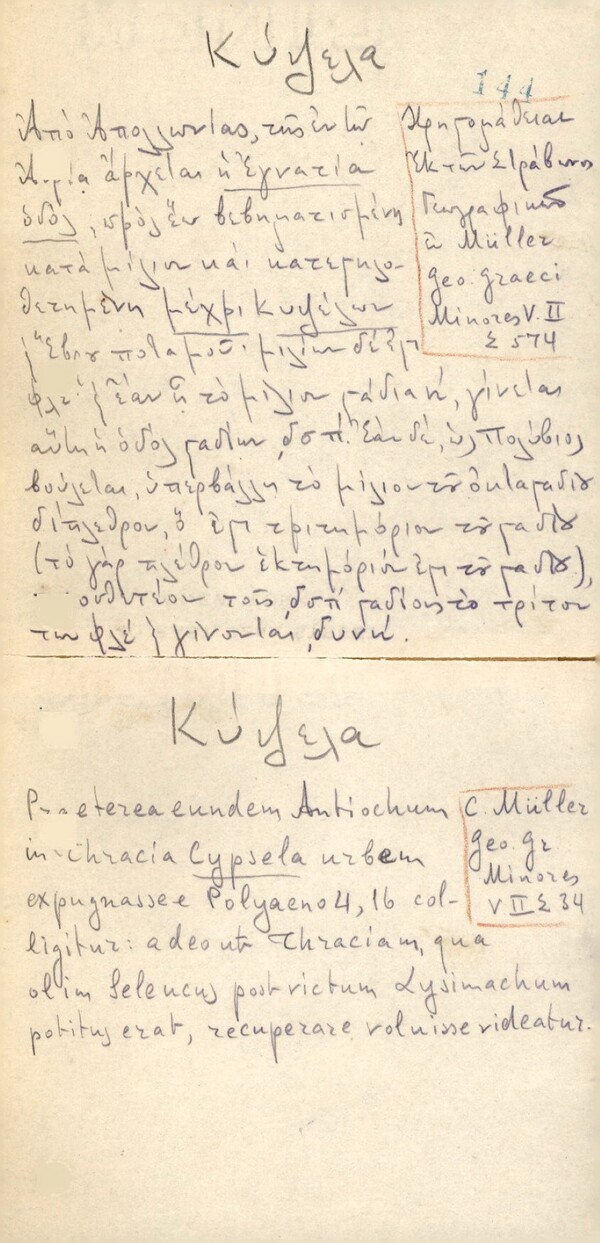 Κύψελα
144
Ἀπὸ Ἀπολλωνίας, τῆς ἐν τῇ
ἄρχεται ἡ Ἐγνατία
ὁδὸς, πρὸς ἕω βεβηματισμένη
κατὰ μίλιον καὶ κατεστηλο-
θετημένη μέχρι Κυψέλων
{Ἕβρου ποταμοῦ· μιλίων δέ ἐστι
φλε'} ἐὰν ᾖ τὸ μίλιον στάδια ή, γίνεται
αὕτη ἡ ὁδὸς σταδίων ͵δσπ'. Ἐὰν δέ, ὡς Πολύβιος
βούλεται, ὑπερβάλλῃ τὸ μίλιον τοῦ ὀκτασταδίου
δίπλεθρον, ὅ ἐστι τριτημόριον τοῦ σταδίου
(τὸ γὰρ πλέθρον ἑκτημόριόν ἐστι τοῦ σταδίου),
τοῖς ͵δσπ' σταδίοις τὸ τρίτον
των φλέ} γίνονται ͵δυνή.
Χρηστομάθειαι
ἐκ τῶν Στράβωνος
Γεωγραφικῶν
Müller
Geo. Graeci
Minores V. II
Σ 574
Κύψελα
Praeterea eundem Antiochum
in Thracia Cypsela urbem
expugnasse e Polyaeno 4, 16 col-
ligitur: adeo ut Thraciam, qua
olim Seleucus post victum Lysimachum
potitus erat, recuperare voluisse videatur.
C. Müller
Geo. Gr
Minores
V II Σ 34